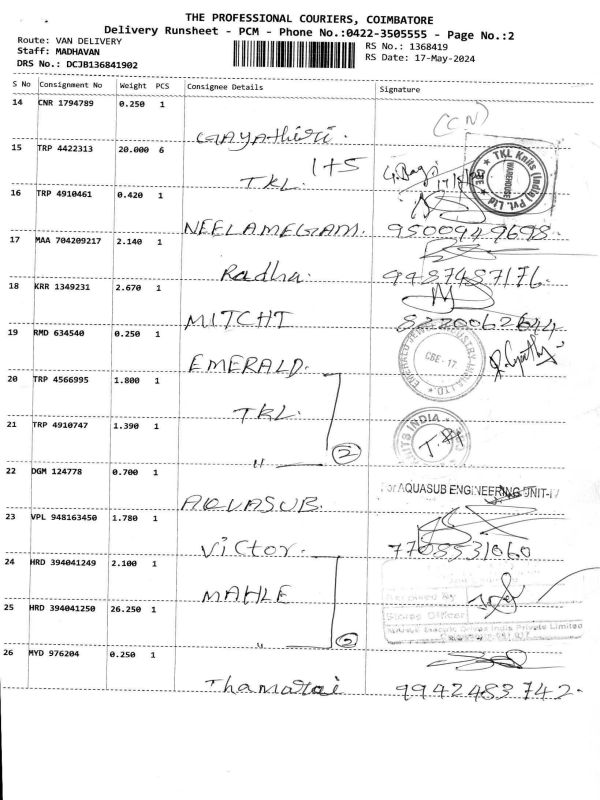 THE PROFESSIONAL COURIERS, COIMBATORE
Delivery Runsheet - PCM - Phone No.:0422-3505555 - Page No.:2
Route: VAN DELIVERY
RS No.: 1368419
Staff: MADHAVAN
RS Date: 17-May-2024
DRS No.: DCJB136841902
S No Consignment No Weight PCS Consignee Details Signature
14 CNR 1794789 0.250 1
(CN)
Gayathiri.
15 TRP 4422313 20.000 6
1+5
TKL.
TKL Knits (India) Pvt. Ltd
WAREHOUSE
16 TRP 4910461 0.420 1
NEELAMEGAM. 9500949698.
17 MAA 704209217 2.140 1
Radha. 9487487176.
18 KRR 1349231 2.670 1
MITCHI 8220062644
19 RMD 634540 0.250 1
EMERALD.
CBE-17
20 TRP 4566995 1.800 1
TKL.
21 TRP 4910747 1.390 1
" 2
22 DGM 124778 0.700 1
For AQUASUB ENGINEERING UNIT-IV
AQUASUB.
23 VPL 948163450 1.780 1
Victor. 7708531060
24 HRD 394041249 2.100 1
MAHLE
Received By
Stores Officer
25 HRD 394041250 26.250 1
" 2
26 MYD 976204 0.250 1
Thamarai 9942483742.